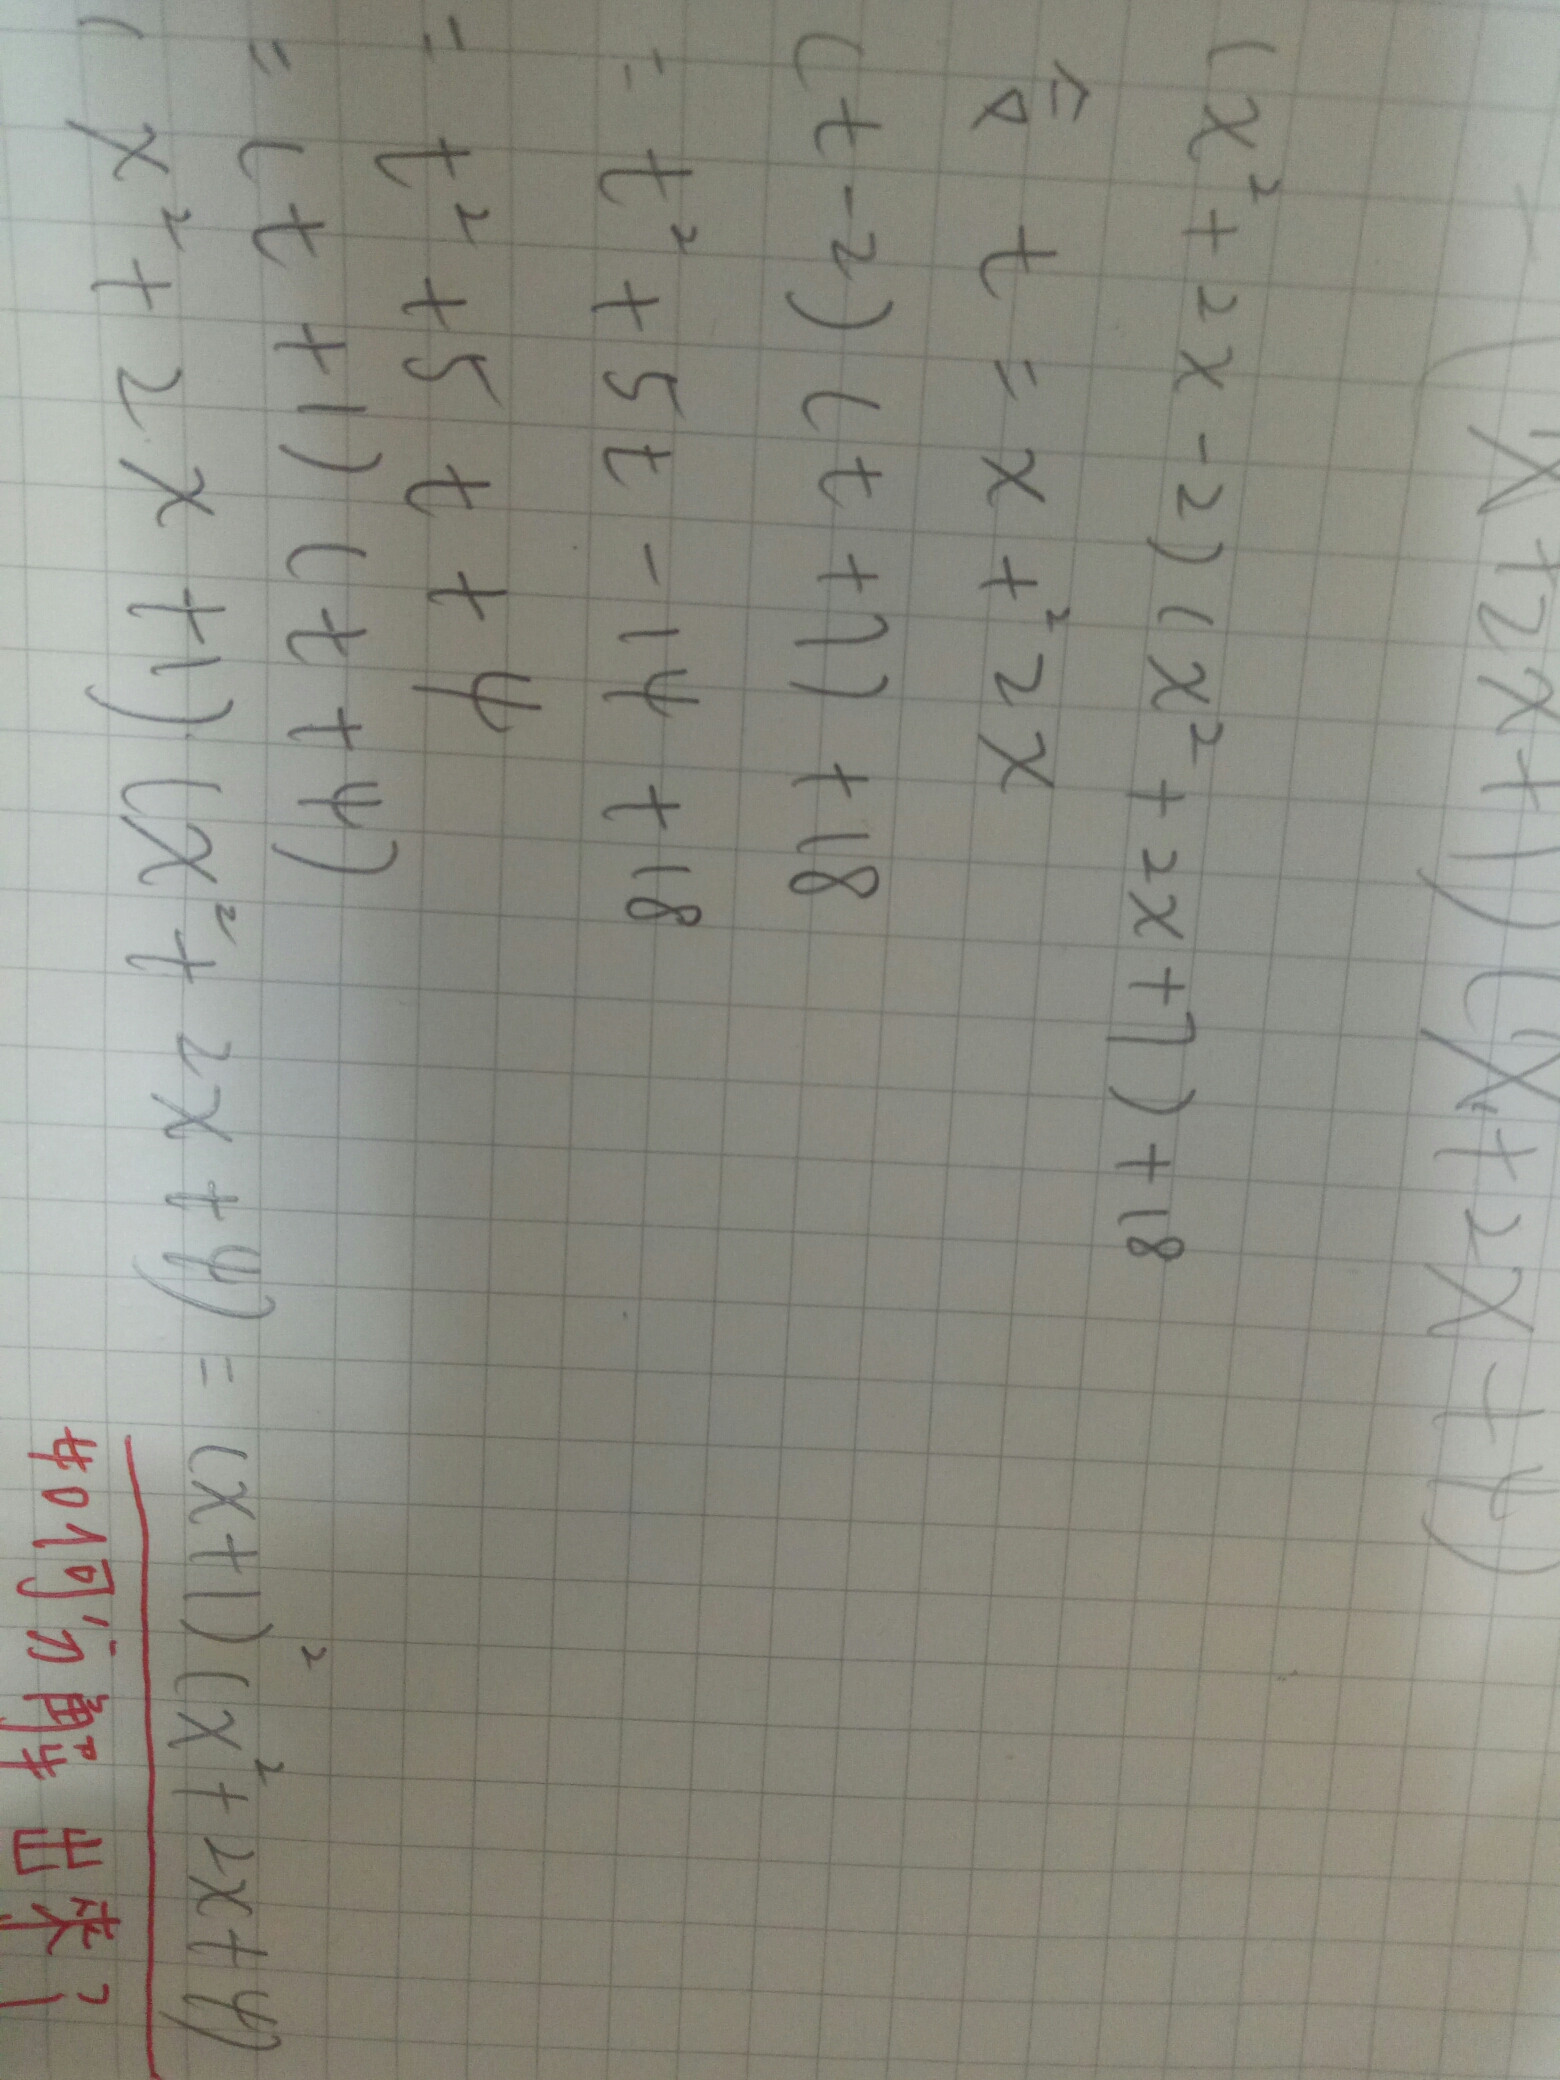 (x²+2x+1)(x²+2x+4)
(x²+2x-2)(x²+2x+7)+18
令 t = x+²2x
(t-2)(t+7)+18
= t²+5t-14+18
= t²+5t+4
= (t+1)(t+4)
(x²+2x+1)(x²+2x+4) = (x+1)²(x²+2x+4)
如何 解出來?